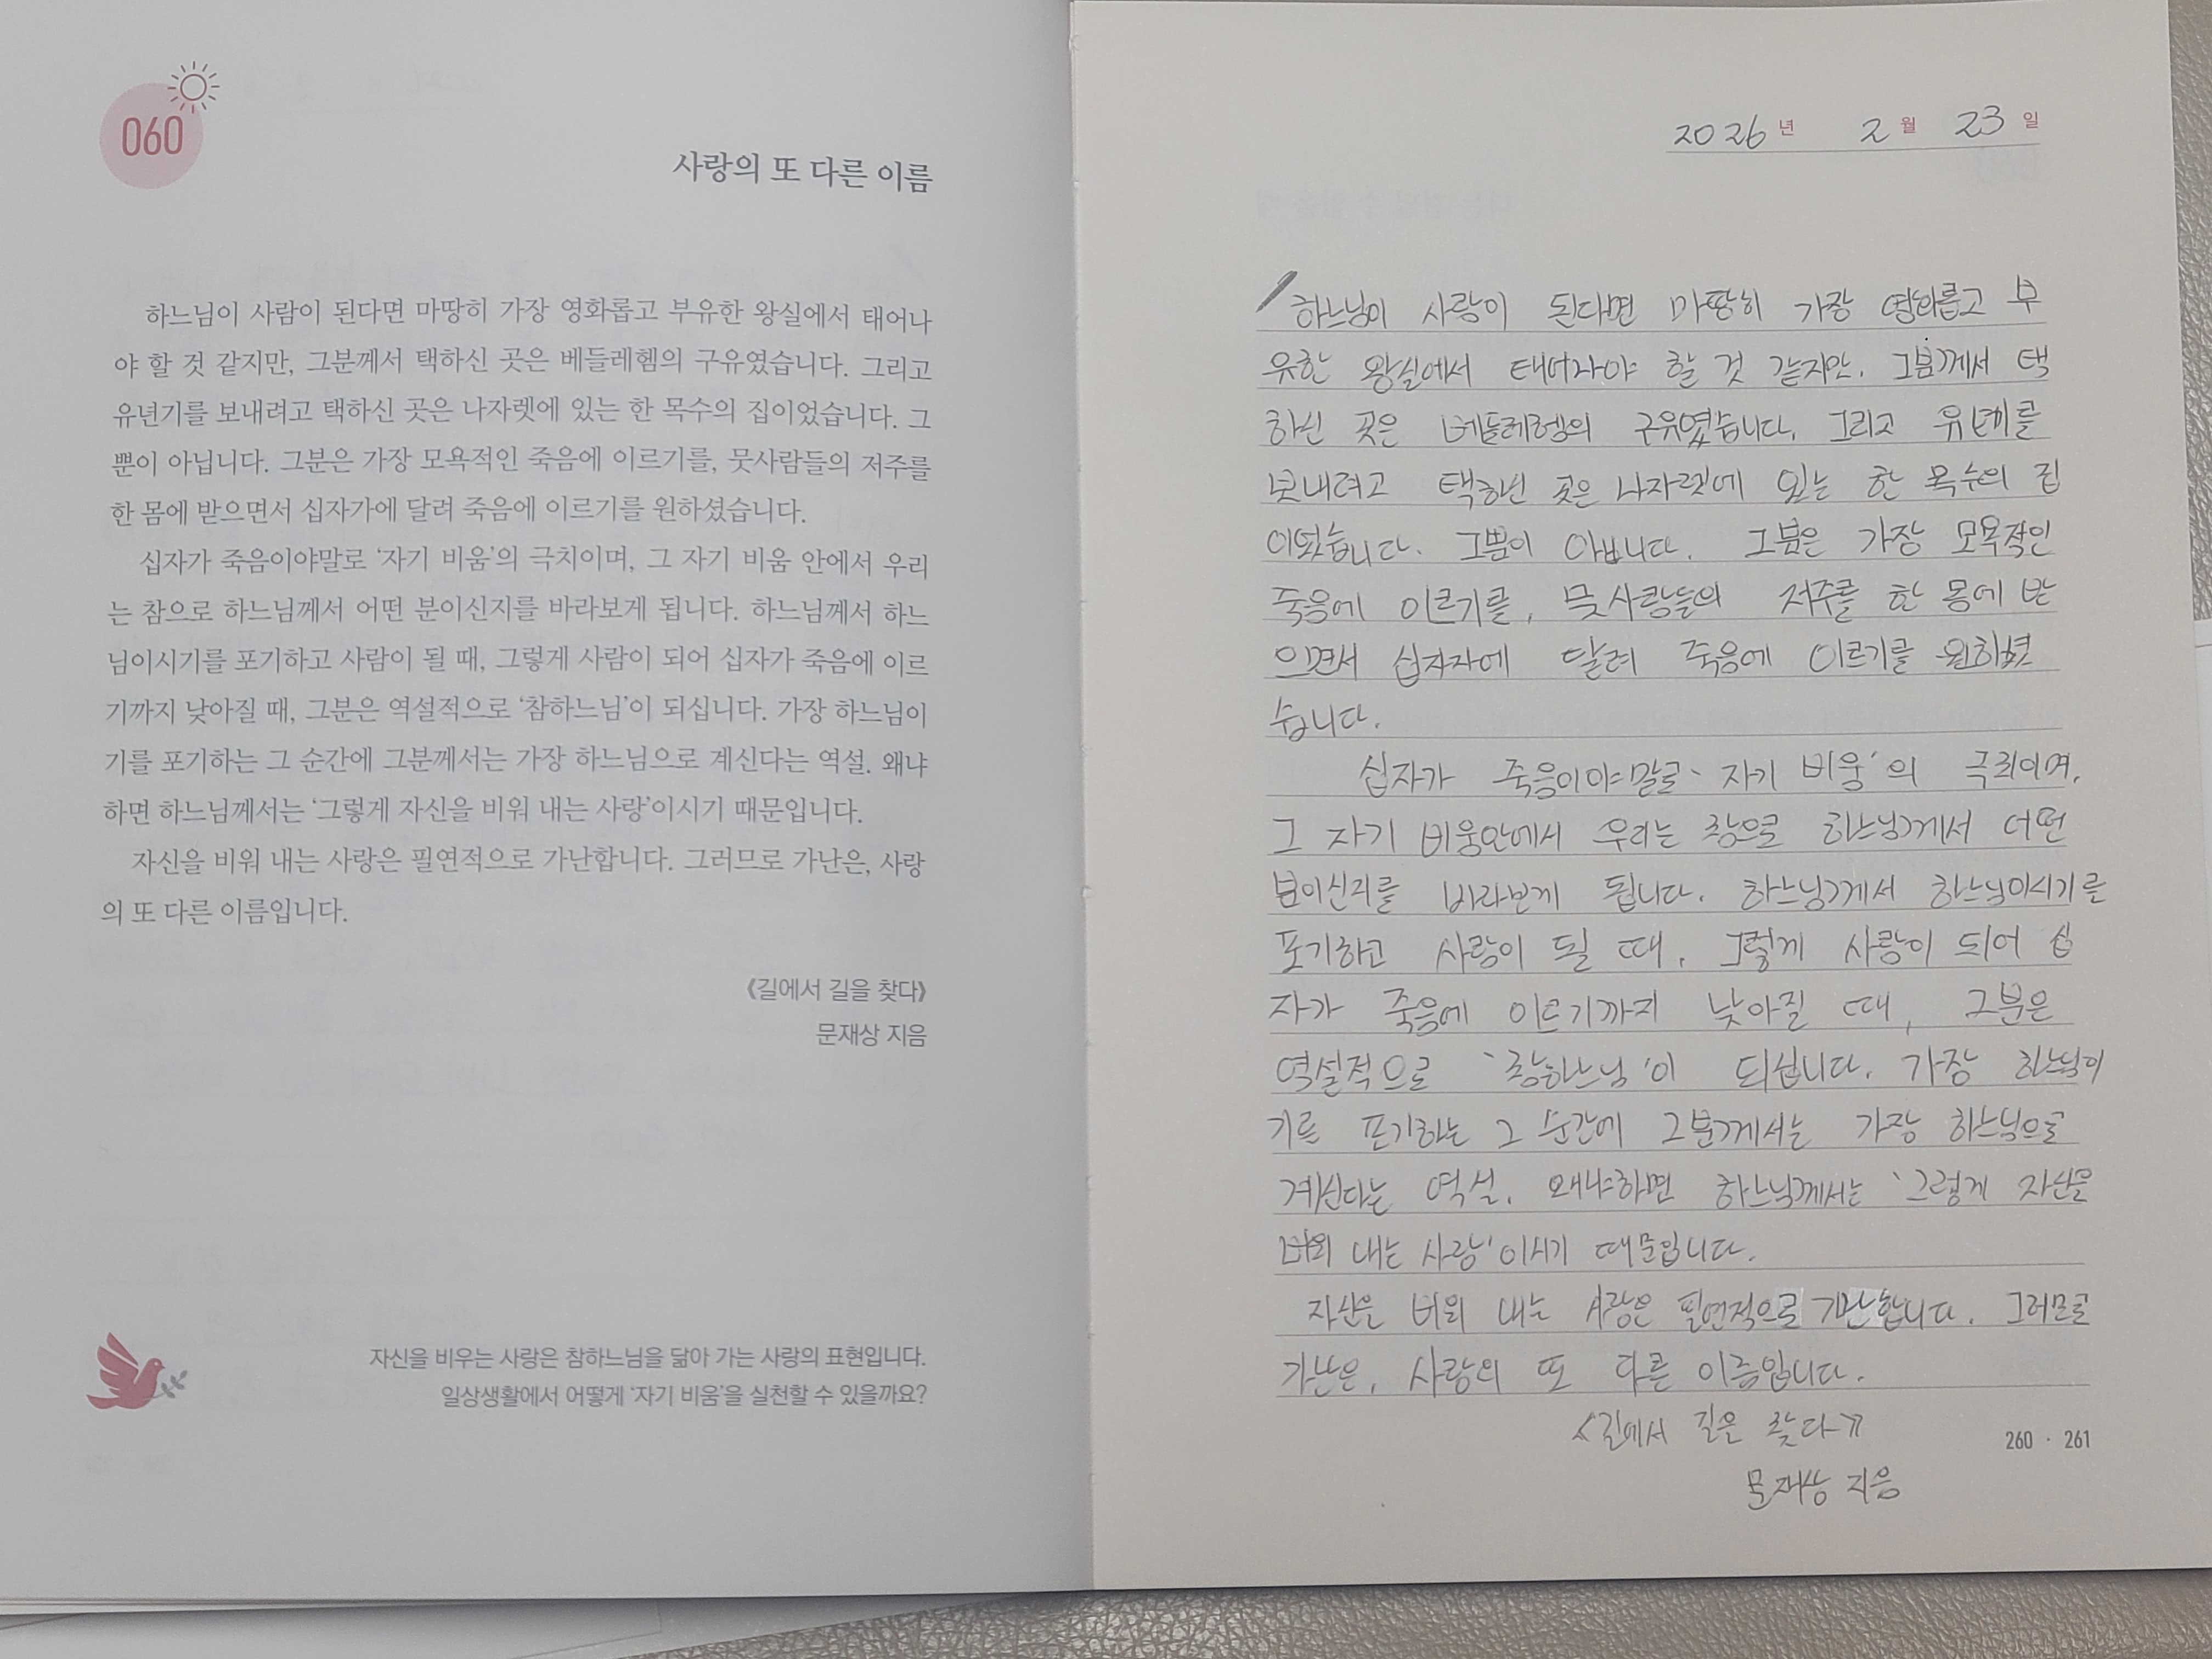 060
사랑의 또 다른 이름
하느님이 사람이 된다면 마땅히 가장 영화롭고 부유한 왕실에서 태어나
야 할 것 같지만, 그분께서 택하신 곳은 베들레헴의 구유였습니다. 그리고
유년기를 보내려고 택하신 곳은 나자렛에 있는 한 목수의 집이었습니다. 그
뿐이 아닙니다. 그분은 가장 모욕적인 죽음에 이르기를, 뭇사람들의 저주를
한 몸에 받으면서 십자가에 달려 죽음에 이르기를 원하셨습니다.
십자가 죽음이야말로 ‘자기 비움’의 극치이며, 그 자기 비움 안에서 우리
는 참으로 하느님께서 어떤 분이신지를 바라보게 됩니다. 하느님께서 하느
님이시기를 포기하고 사람이 될 때, 그렇게 사람이 되어 십자가 죽음에 이르
기까지 낮아질 때, 그분은 역설적으로 ‘참하느님’이 되십니다. 가장 하느님이
기를 포기하는 그 순간에 그분께서는 가장 하느님으로 계신다는 역설. 왜냐
하면 하느님께서는 ‘그렇게 자신을 비워 내는 사랑’이시기 때문입니다.
자신을 비워 내는 사랑은 필연적으로 가난합니다. 그러므로 가난은, 사랑
의 또 다른 이름입니다.
《길에서 길을 찾다》
문재상 지음
자신을 비우는 사랑은 참하느님을 닮아 가는 사랑의 표현입니다.
일상생활에서 어떻게 ‘자기 비움’을 실천할 수 있을까요?
2026년 2월 23일
하느님이 사람이 된다면 마땅히 가장 영화롭고 부
유한 왕실에서 태어나야 할 것 같지만, 그분께서 택
하신 곳은 베들레헴의 구유였습니다. 그리고 유년기를
보내려고 택하신 곳은 나자렛에 있는 한 목수의 집
이었습니다. 그뿐이 아닙니다. 그분은 가장 모욕적인
죽음에 이르기를, 뭇사람들의 저주를 한 몸에 받
으면서 십자가에 달려 죽음에 이르기를 원하셨
습니다.
십자가 죽음이야말로 ‘자기 비움’의 극치이며,
그 자기 비움안에서 우리는 참으로 하느님께서 어떤
분이신지를 바라보게 됩니다. 하느님께서 하느님이시기를
포기하고 사람이 될 때, 그렇게 사람이 되어 십
자가 죽음에 이르기까지 낮아질 때, 그분은
역설적으로 ‘참하느님’이 되십니다. 가장 하느님이
기를 포기하는 그 순간에 그분께서는 가장 하느님으로
계신다는 역설. 왜냐하면 하느님께서는 ‘그렇게 자신을
비워 내는 사랑’이시기 때문입니다.
자신을 비워 내는 사랑은 필연적으로 가난합니다. 그러므로
가난은, 사랑의 또 다른 이름입니다.
《길에서 길을 찾다》
문재상 지음
260 · 261